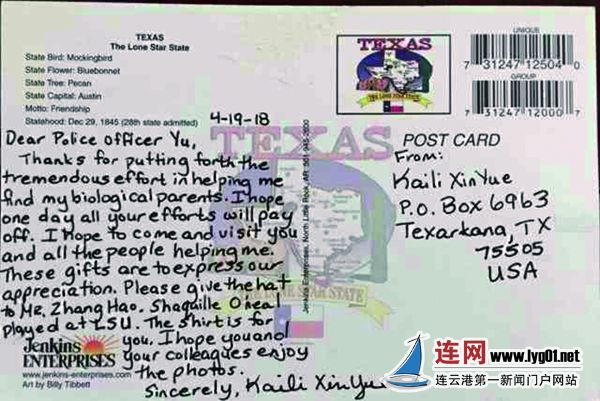 TEXAS
The Lone Star State
State Bird: Mockingbird
State Flower: Bluebonnet
State Tree: Pecan
State Capital: Austin
Motto: Friendship
Statehood: Dec 29, 1845 (28th state admitted)
4-19-18
Dear Police officer Yu,
Thanks for putting forth the
tremendous effort in helping me
find my biological parents. I hope
one day all your efforts will pay
off. I Hope to come and visit you
and all the people helping me.
These gifts are to express our
appreciation. Please give the hat
to Mr. Zhang Hao. Shaquille O'neal
played at LSU. The shirt is for
you. I hope you and
your colleagues enjoy
the photos.
Sincerely, Kaili XinYue
Jenkins
ENTERPRISES
www.jenkins-enterprises.com
Art by Billy Tibbett
Jenkins Enterprises, North Little Rock, AR
TEXAS
THE LONE STAR STATE
TEXAS
THE LONE STAR STATE
UNIQUE
7 31247 12504 0
GROUP
7 31247 12000 7
POST CARD
From:
Kaili XinYue
P.O. Box 6963
Texarkana, TX
75505
USA
连网 www.lyg01.net
连云港第一新闻门户网站